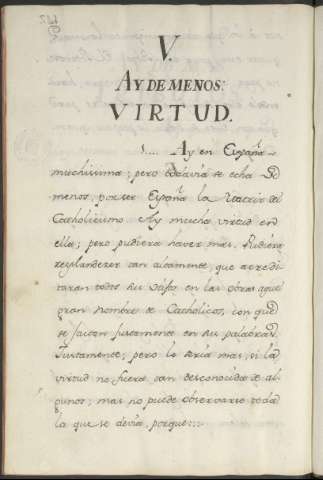 V.
AY DE MENOS:
VIRTUD.
1.... Ay en España
muchissima; pero todavia se echa de
menos, por ser España la Reactriz del
Catholicismo. Ay mucha virtud en
ella; pero pudiera haver mas. Pudiera
resplandezer tan altamente, que acredi-
taran todos sus en las obras aquel
gran nombre de Catholicos, con que
se justamente en sus palabras.
Justamente; pero lo seria mas, si la
virtud no fuera tan desconocida de al-
gunos; mas no puede observarse toda
la que se devia, porque:...